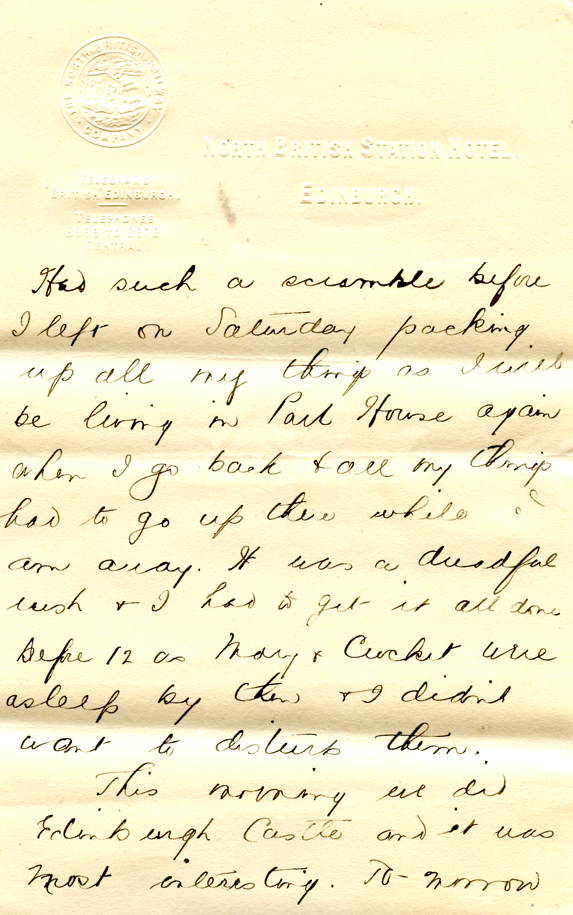 THE NORTH BRITISH RAILWAY COMPANY
NORTH BRITISH STATION HOTEL.
EDINBURGH.
TELEGRAMS
"BRITISH EDINBURGH."
TELEPHONES
8668 TO 8672
CENTRAL.
Had such a scramble before
I left on Saturday packing
up all my things as I will
be living in House again
when I go back & all my things
had to go up there while I
am away. It was a dreadful
rush & I had to get it all done
before 12 as Mary & were
asleep by then & I didn't
want to disturb them.
This morning we did
Edinburgh Castle and it was
most interesting. To-morrow